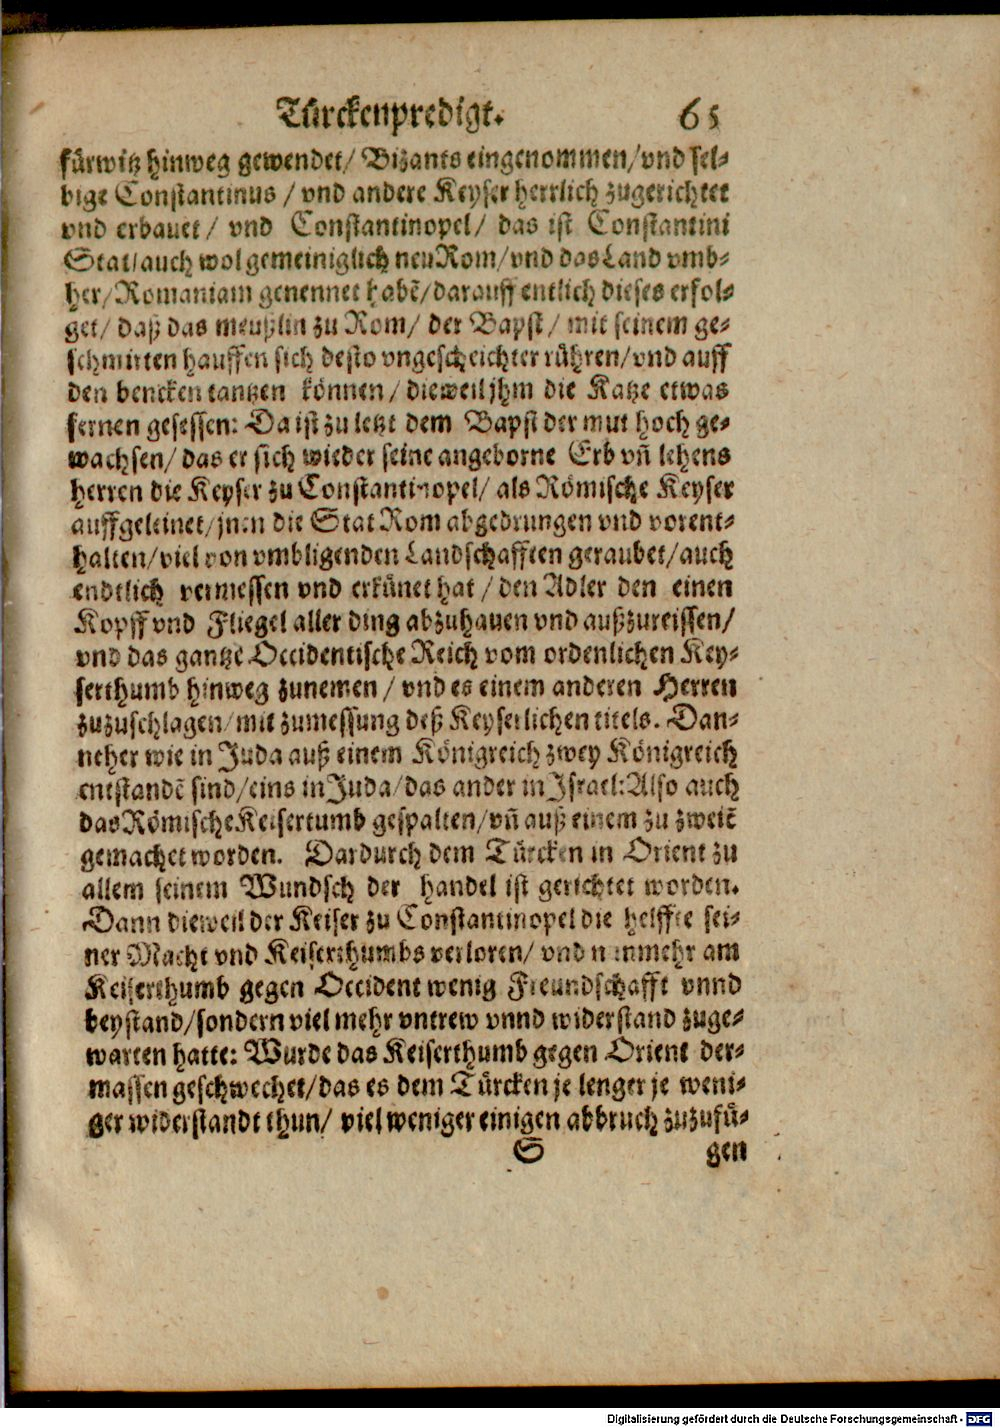 Türckenpredigt. 65
fürwitz hinweg gewendet/ Bizants eingenommen/ vnd sel-
bige Constantinus / vnd andere Keyser herrlich zugerichtet
vnd erbauet/ vnd Constantinopel/ das ist Constantini
Stat/ auch wol gemeiniglich neu Rom/ vnd das Land vmb-
her/ Romaniam genennet habē/ darauff entlich dieses erfol-
get/ daß das meußlin zu Rom/ der Bapst/ mit seinem ge-
schmirten hauffen sich desto vngescheichter rühren/ vnd auff
den bencken tantzen können/ dieweil jhm die Katze etwas
fernen gesessen: Da ist zu letzt dem Bapst der mut hoch ge-
wachsen/ das er sich wieder seine angeborne Erb vñ lehens
herren die Keyser zu Constantinopel/ als Römische Keyser
auffgeleinet/ jnen die Stat Rom abgedrungen vnd vorent-
halten/ viel von vmbligenden Landschafften geraubet/ auch
endtlich vermessen vnd erkünet hat / den Adler den einen
Kopff vnd Fliegel aller ding abzuhauen vnd außzureissen/
vnd das gantze Occidentische Reich vom ordenlichen Key-
serthumb hinweg zunemen / vnd es einem anderen Herren
zuzuschlagen/ mit zumessung deß Keyserlichen titels. Dan-
neher wie in Juda auß einem Königreich zwey Königreich
entstandē sind/ eins in Juda/ das ander in Israel: Also auch
das Römische Keisertumb gespalten/ vñ auß einem zu zweiē
gemachet worden. Dardurch dem Türcken in Orient zu
allem seinem Wundsch der handel ist gerichtet worden.
Dann dieweil der Keiser zu Constantinopel die helffte sei-
ner Macht vnd Keiserthumbs verloren/ vnd nunmehr am
Keiserthumb gegen Occident wenig Freundschafft vnnd
beystand/ sondern viel mehr vntrew vnnd widerstand zuge-
warten hatte: Wurde das Keiserthumb gegen Orient der-
massen geschwechet/ das es dem Türcken je lenger je weni-
ger widerstandt thun/ viel weniger einigen abbruch zuzufü-
S gen
Digitalisierung gefördert durch die Deutsche Forschungsgemeinschaft - DFG